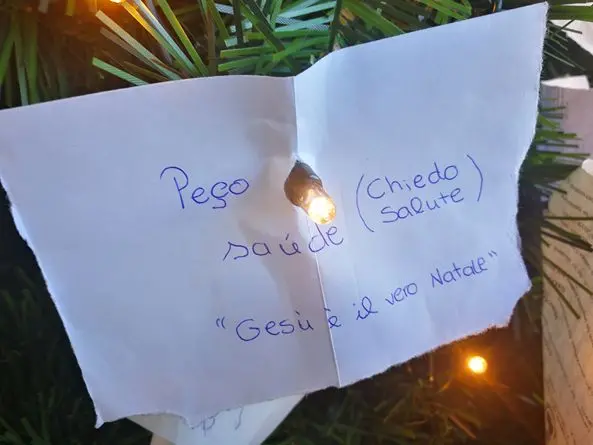 Peço (Chiedo
saúde Salute)
"Gesù è il vero Natale"